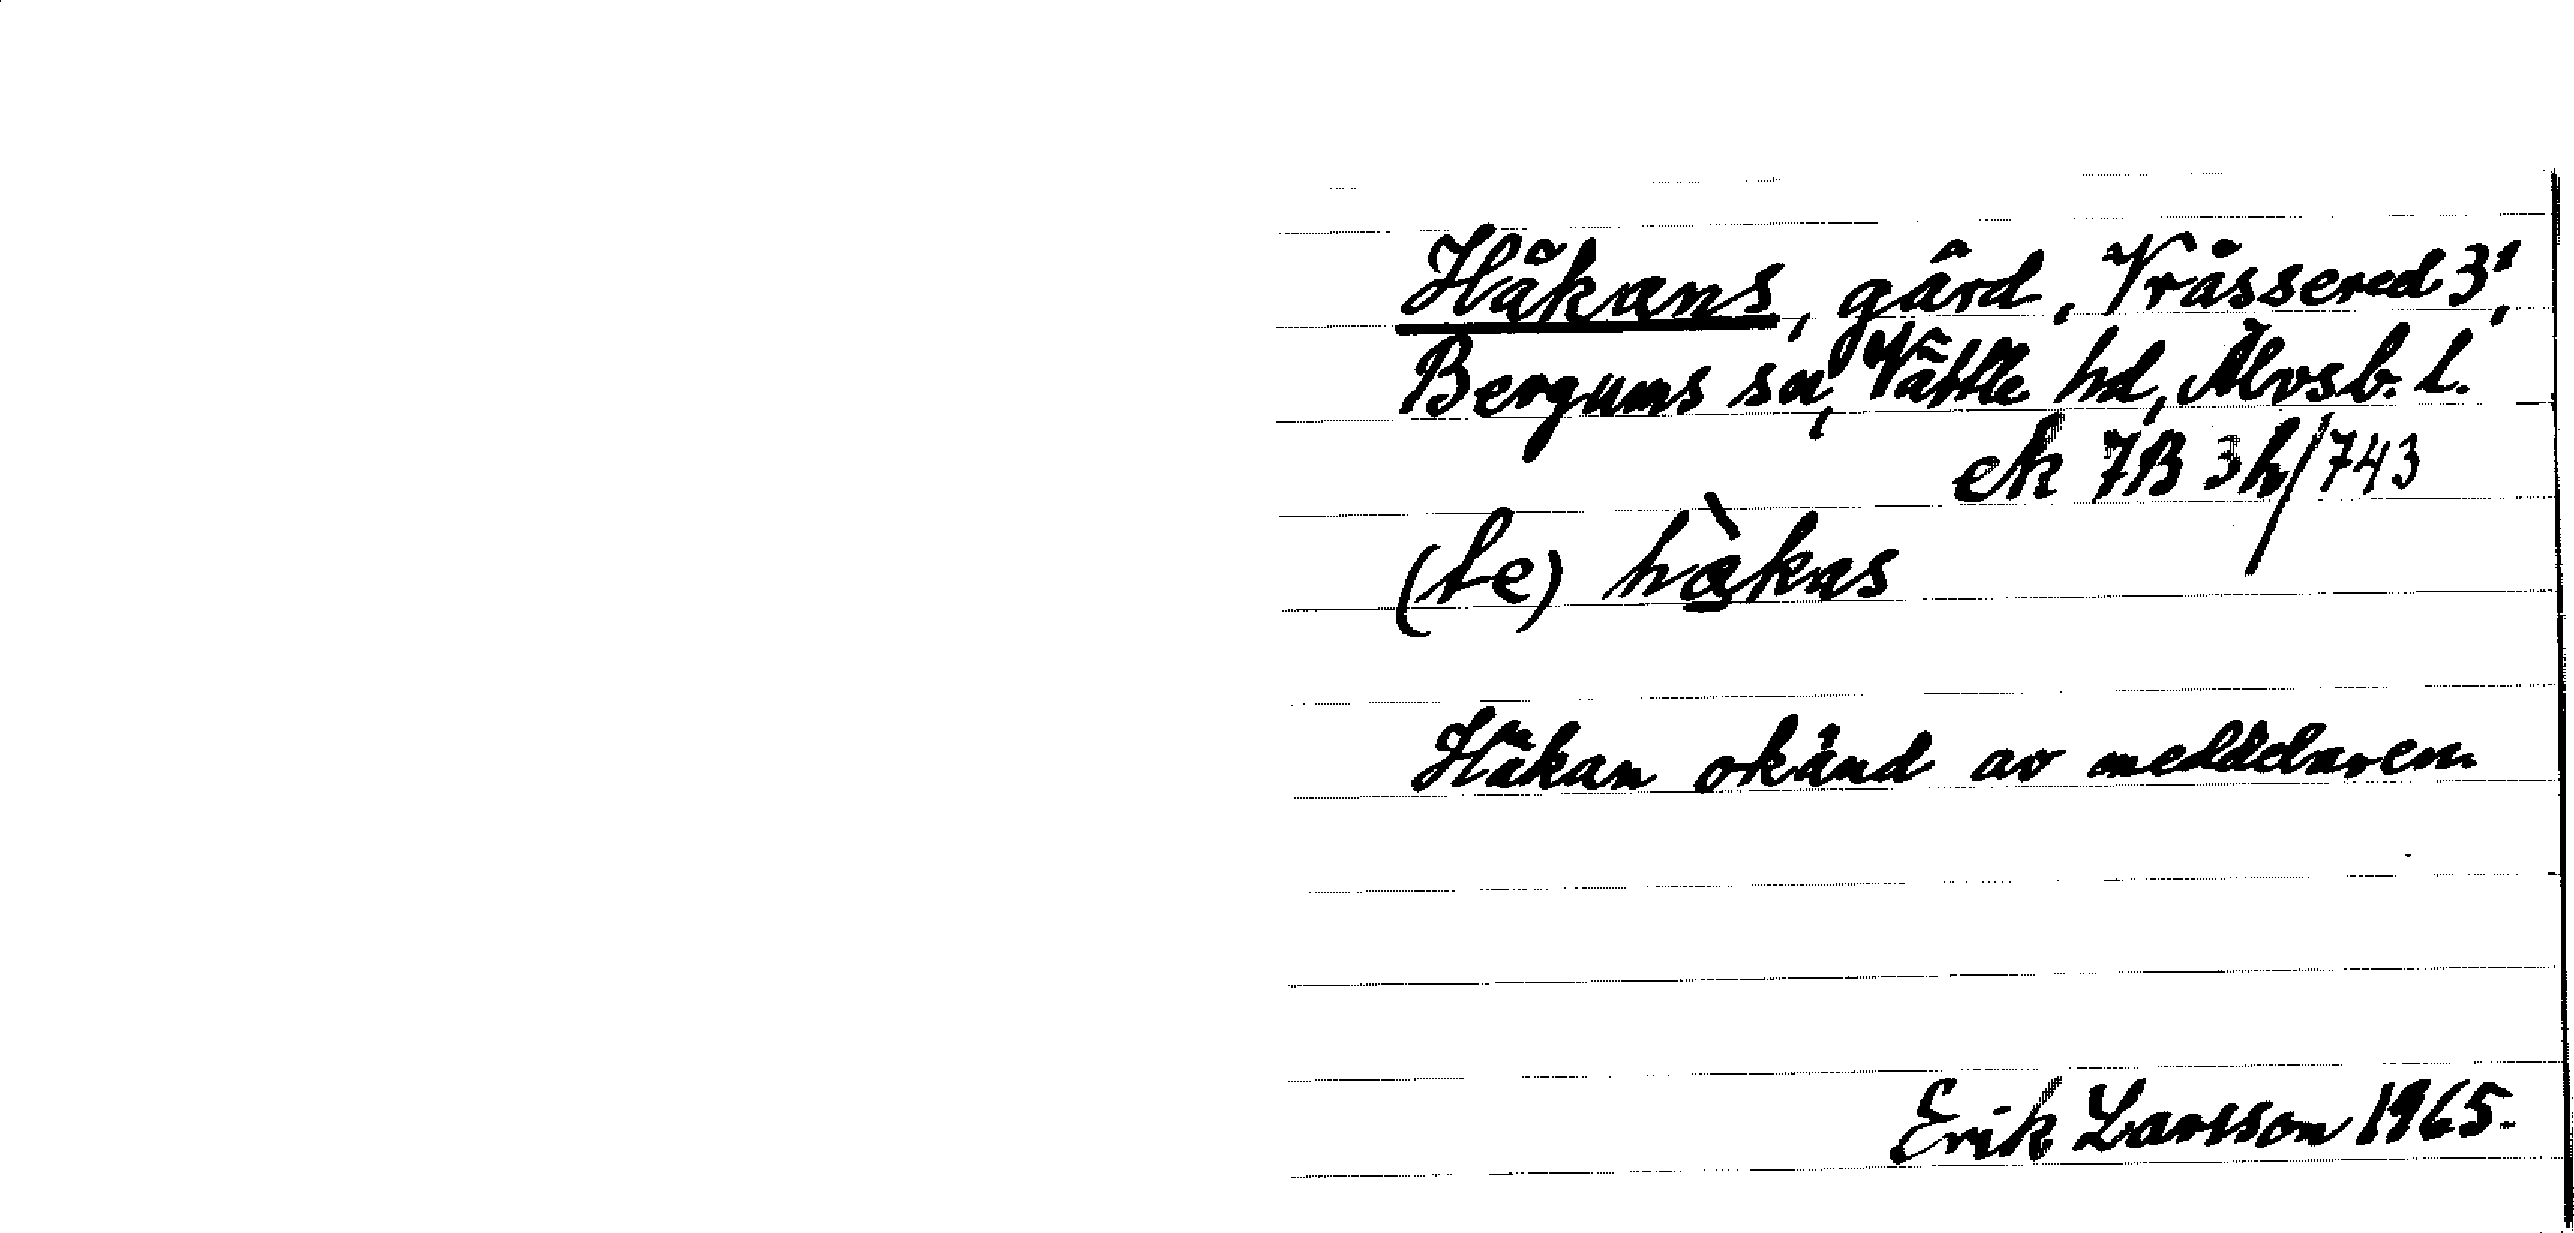 Håkans, gård, Vråssered 3¹,
Bergums sn, Vättle hd, Älvsb. l.
ek 7B 3h/743
(te) hå̀kas
Håkan okänd av meddelaren
Erik Larsson 1965.